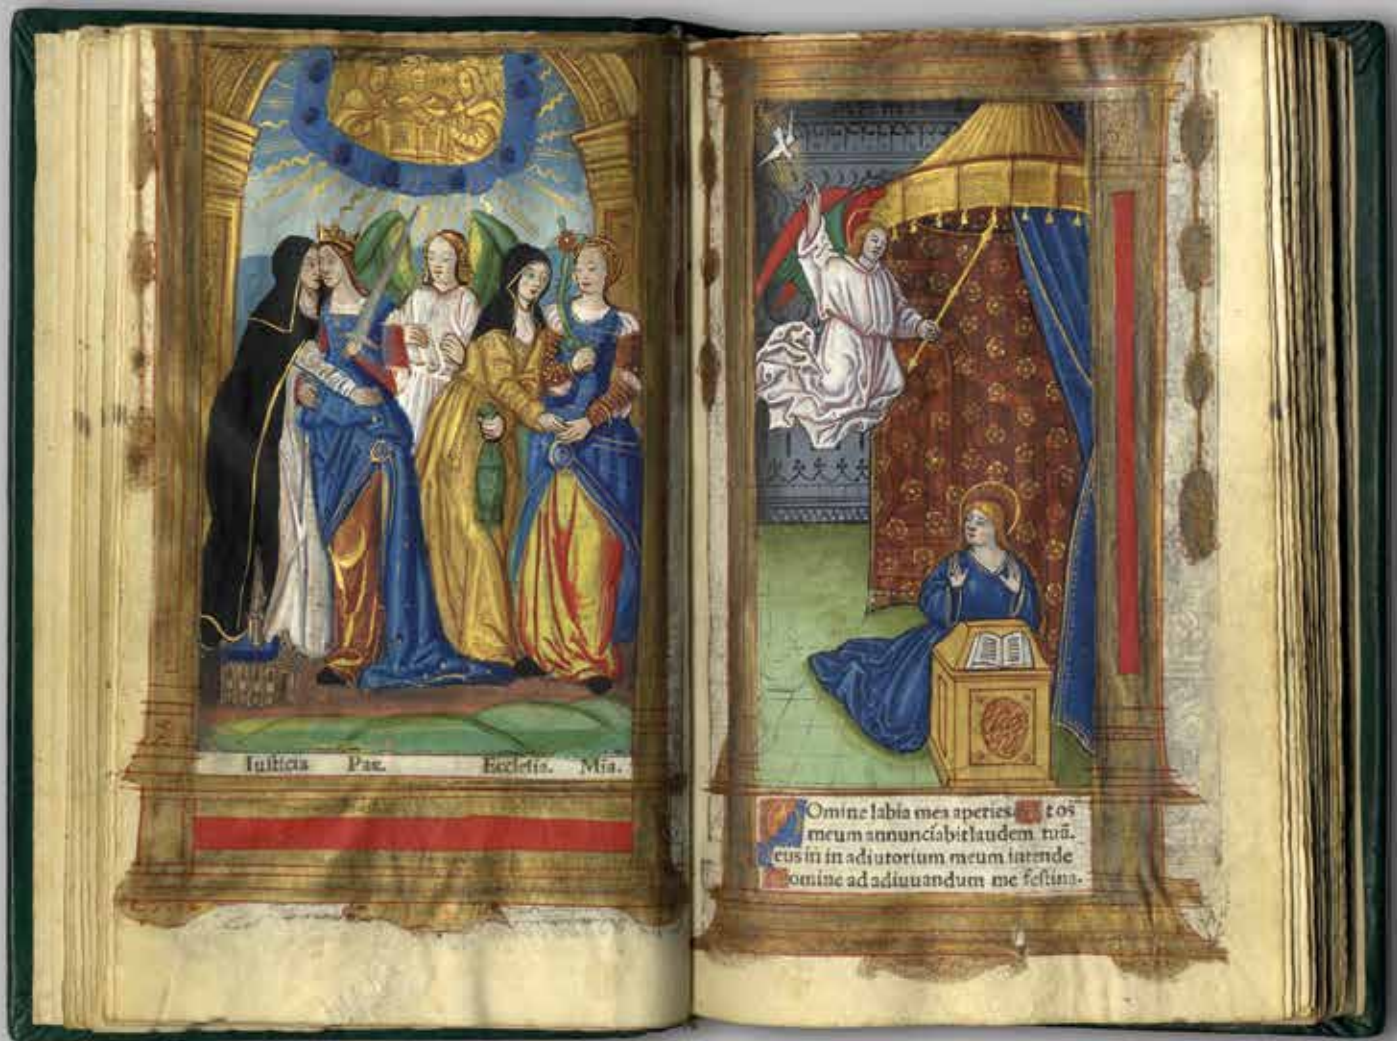 Iusticia Pax. Ecclesia. Mia.
Omine labia mea aperies et os
meum annunciabit laudem tuã.
eus in in adiutorium meum intende
omine ad adiuuandum me festina.